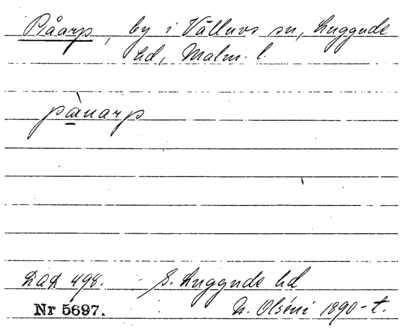 Påarp, by i Välluvs sn, Luggude
hd, Malm. l.
pànarp
Lad 498. S. Luggude hd
Nr 5697. N. Olséni 1890-t.